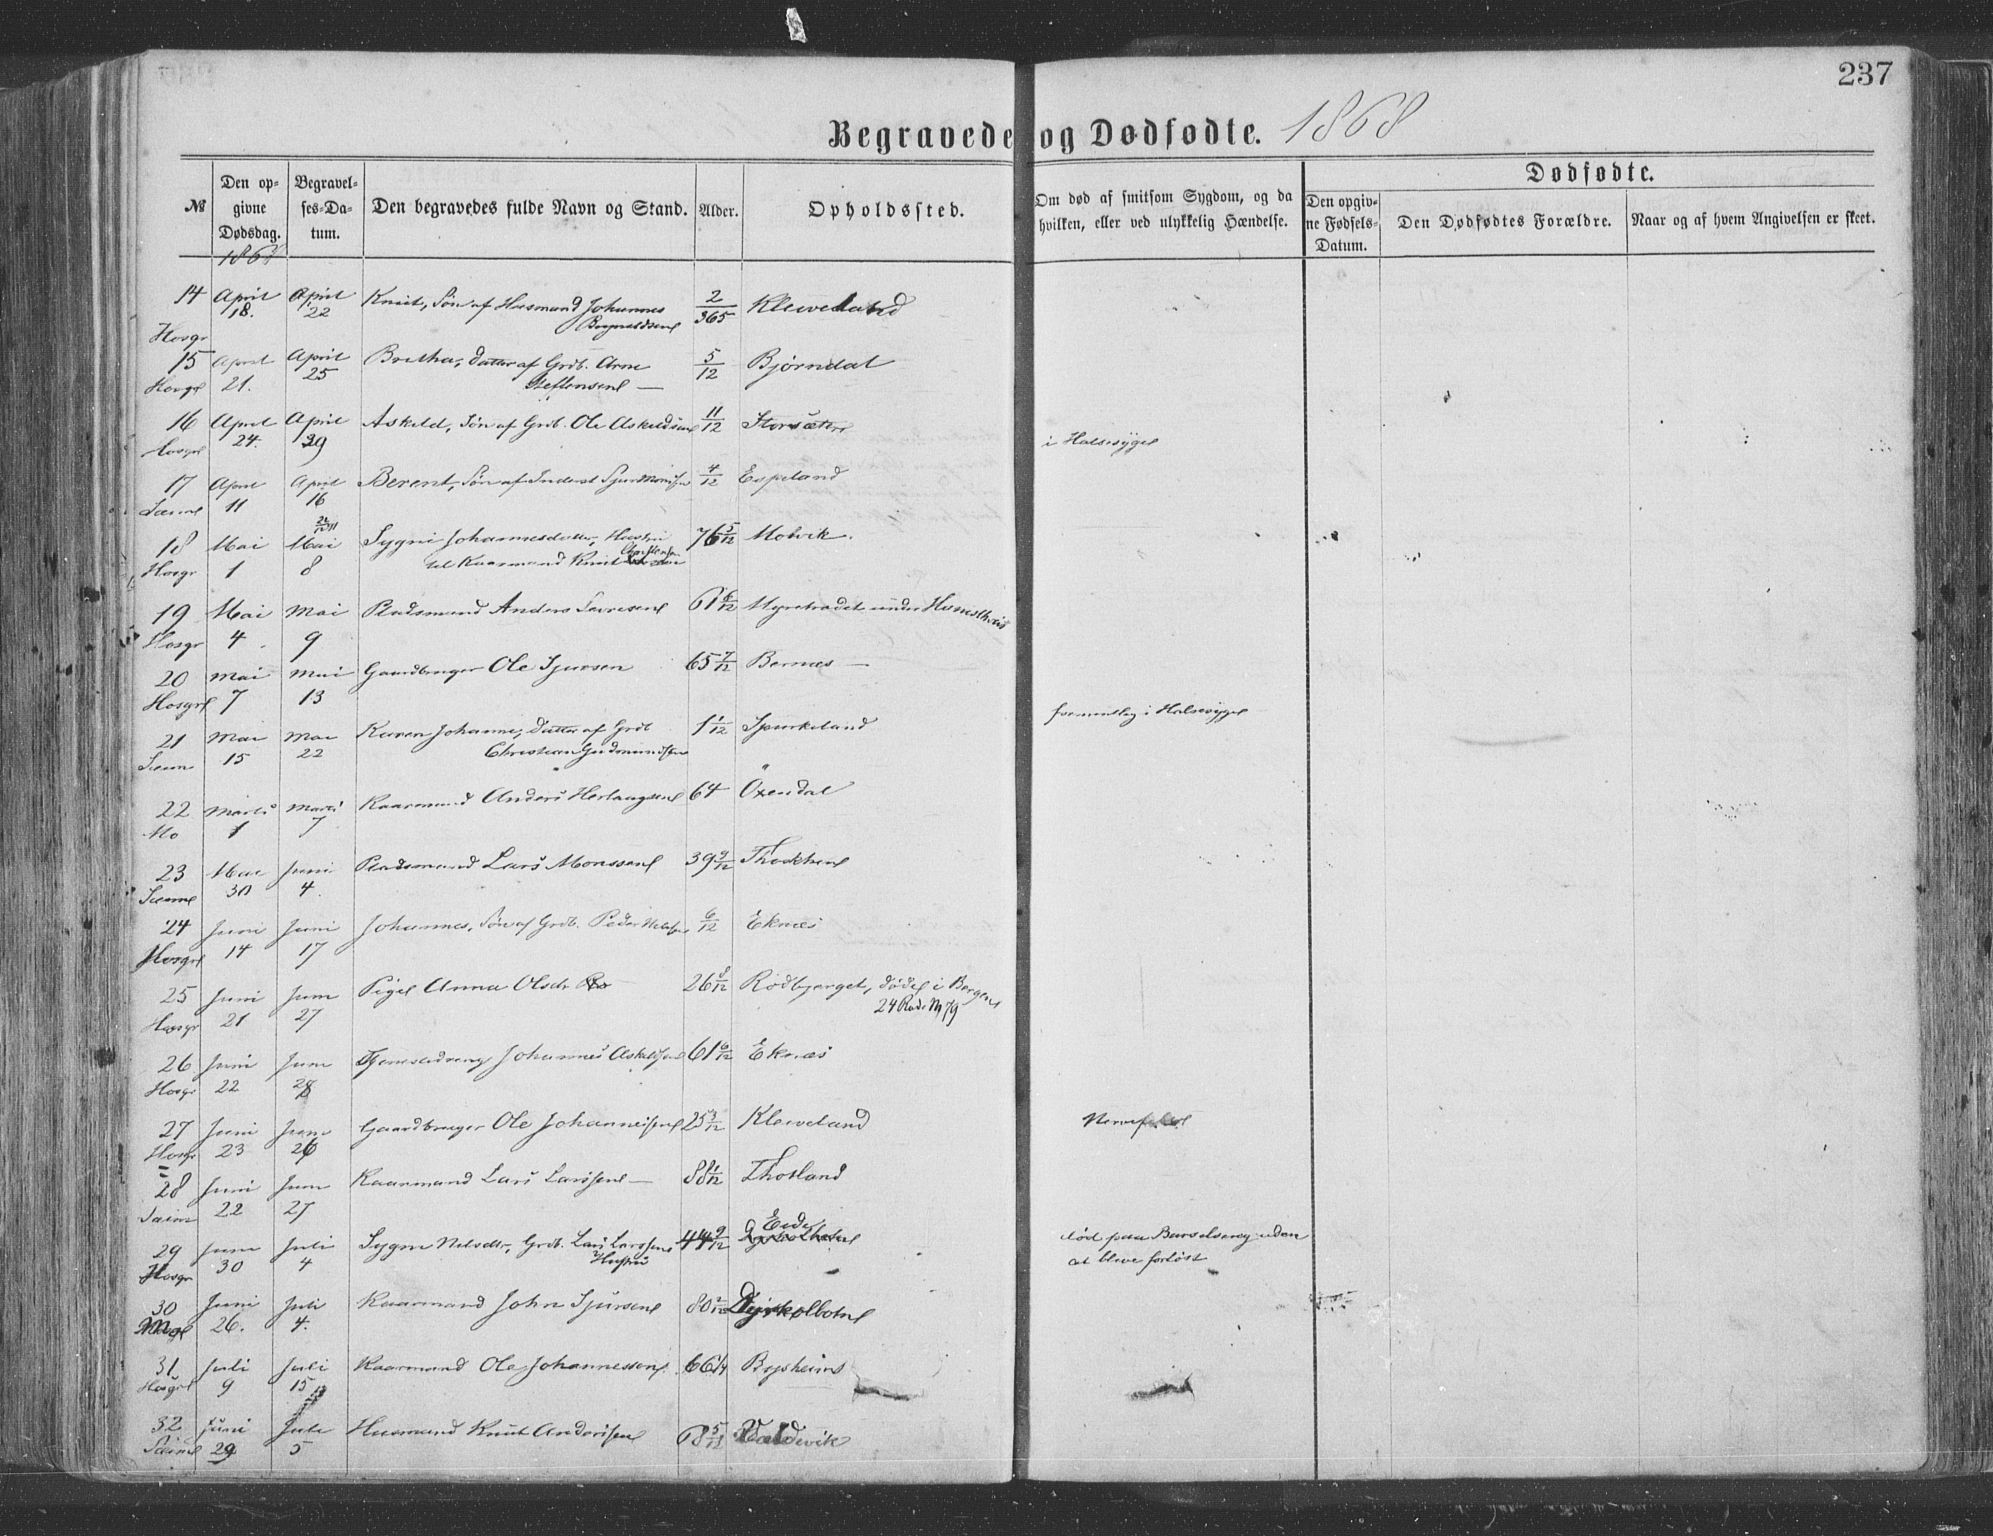 237
Begravede og Dødfødte. 1868
Dødfødte.
№
Den opgivne Dødsdag.
Begravelses-Datum.
Den begravedes fulde Navn og Stand.
Alder.
Opholdssted.
Om død af smitsom Sygdom, og da hvilken, eller ved ulykkelig Hændelse.
Den opgivne Fødsels-Datum.
Den Dødfødtes Forældre.
Naar og af hvem Angivelsen er skeet.
1868
14 April April Knut, Søn af Husmand Johannes 2/365 Kleiveland
Hosgr 18. 22 Brynildsen
15 April April Bretha, Datter af Grdb. Arne 5/12 Bjørndal
Hosgr 21. 25 Steffensen —
16 April April Askeld, Søn af Grdb. Ole Askeldsen 11/12 Storsæter i Halssyge
Hosgr 24. 29
17 April April Berent, Søn af Inderst Sjur Monsen 4/12 Espeland
Sæim 11 16
18 Mai Mai Sygni Johannesdatter, Hustru 76 5/12 Molvik.
Hosgr 1 8 til Kaarmand Knut Christensen
19 Mai Mai Pladsmand Anders 61 6/12 Myretrædet under Humlehui
Hosgr 4. 9
20 Mai Mai Gaardbruger Ole Sjursen 65 7/12 Bernæs —
Hosgr 7 13
21 Mai Mai Karen Johanne, Datter af Grdb 1 1/12 Spurkeland formentlig i Halssyge
Sæim 15 22 Christian Gudmundsen
22 Marts Marts Kaarmand Anders Herlaugsen 64 Öxendal
Mo 1 7
23 Mai Juni Pladsmand Lars Monssen 39 9/12
Sæim 30 4.
24 Juni Juni Johannes, Søn af Grdb. Peder Nilsen 6/12 Eknæs
Hosgr 14 17
25 Juni Juni Pige Anna Olsdr 26 8/12 Rödbjerget, döde i Bergen
Hosgr 21 27 24 Rode № 79
26 Juni Juni Tjenestedreng Johannes Askeldsen 61 6/12 Eknæs
Hosgr 22 28
27 Juni Juni Gaardbruger Ole Johannessen 25 3/12 Kleiveland Nervefeber
Hosgr 23 26
28 Juni Juni Kaarmand Lars Larssen — 88 1/12 Fhotland
Sæim 22 27
29 Juni Juli Sygni Nilsdtr, Grdb. Lars Larssens 44 9/12 Eide død paa Barselseng uden
Hosgr 30 4 Hustru at bleve forløst
30 Juni Juli Kaarmand John Sjursen 80 2/12 Dyrkolbotn
Mo 26. 4.
31 Juli Juli Kaarmand Ole Johannessen 66 1/4 Bysheim
Hosgr 9 15
32 Juni Juli Husmand Knut Andersen 68 5/12 Valdevik
Sæim 29 5